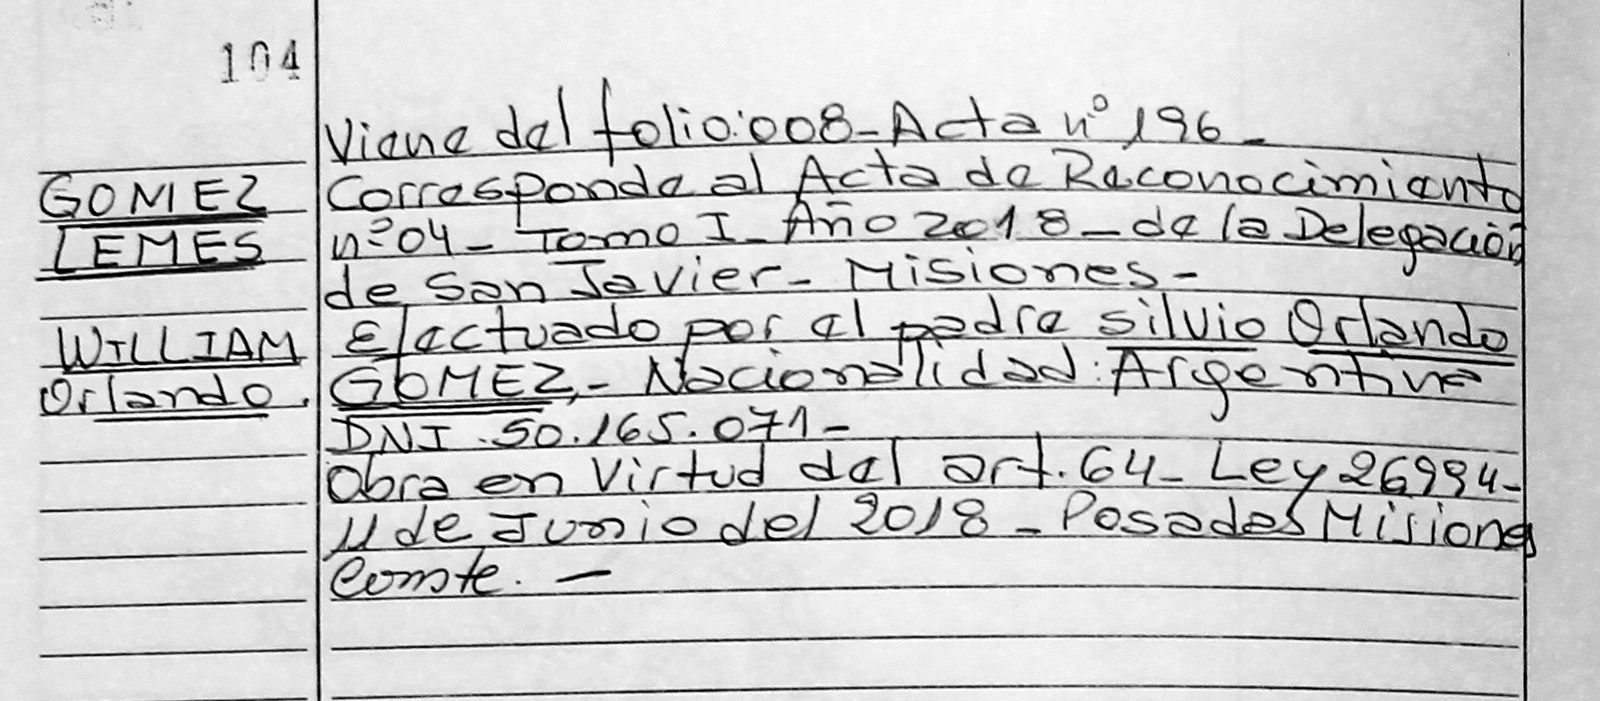 104
GOMEZ
LEMES
WILLIAM
Orlando.
Viene del folio:008-Acta n° 196-
Corresponde al Acta de Reconocimiento
n°04- Tomo I- Año 2018- de la Delegación
de San Javier- Misiones-
Efectuado por el padre Silvio Orlando
GOMEZ,- Nacionalidad: Argentina
DNI.50.165.071-
Obra en Virtud del art.64- Ley 26994-
11 de Junio del 2018- Posadas Misiones
Conste.-